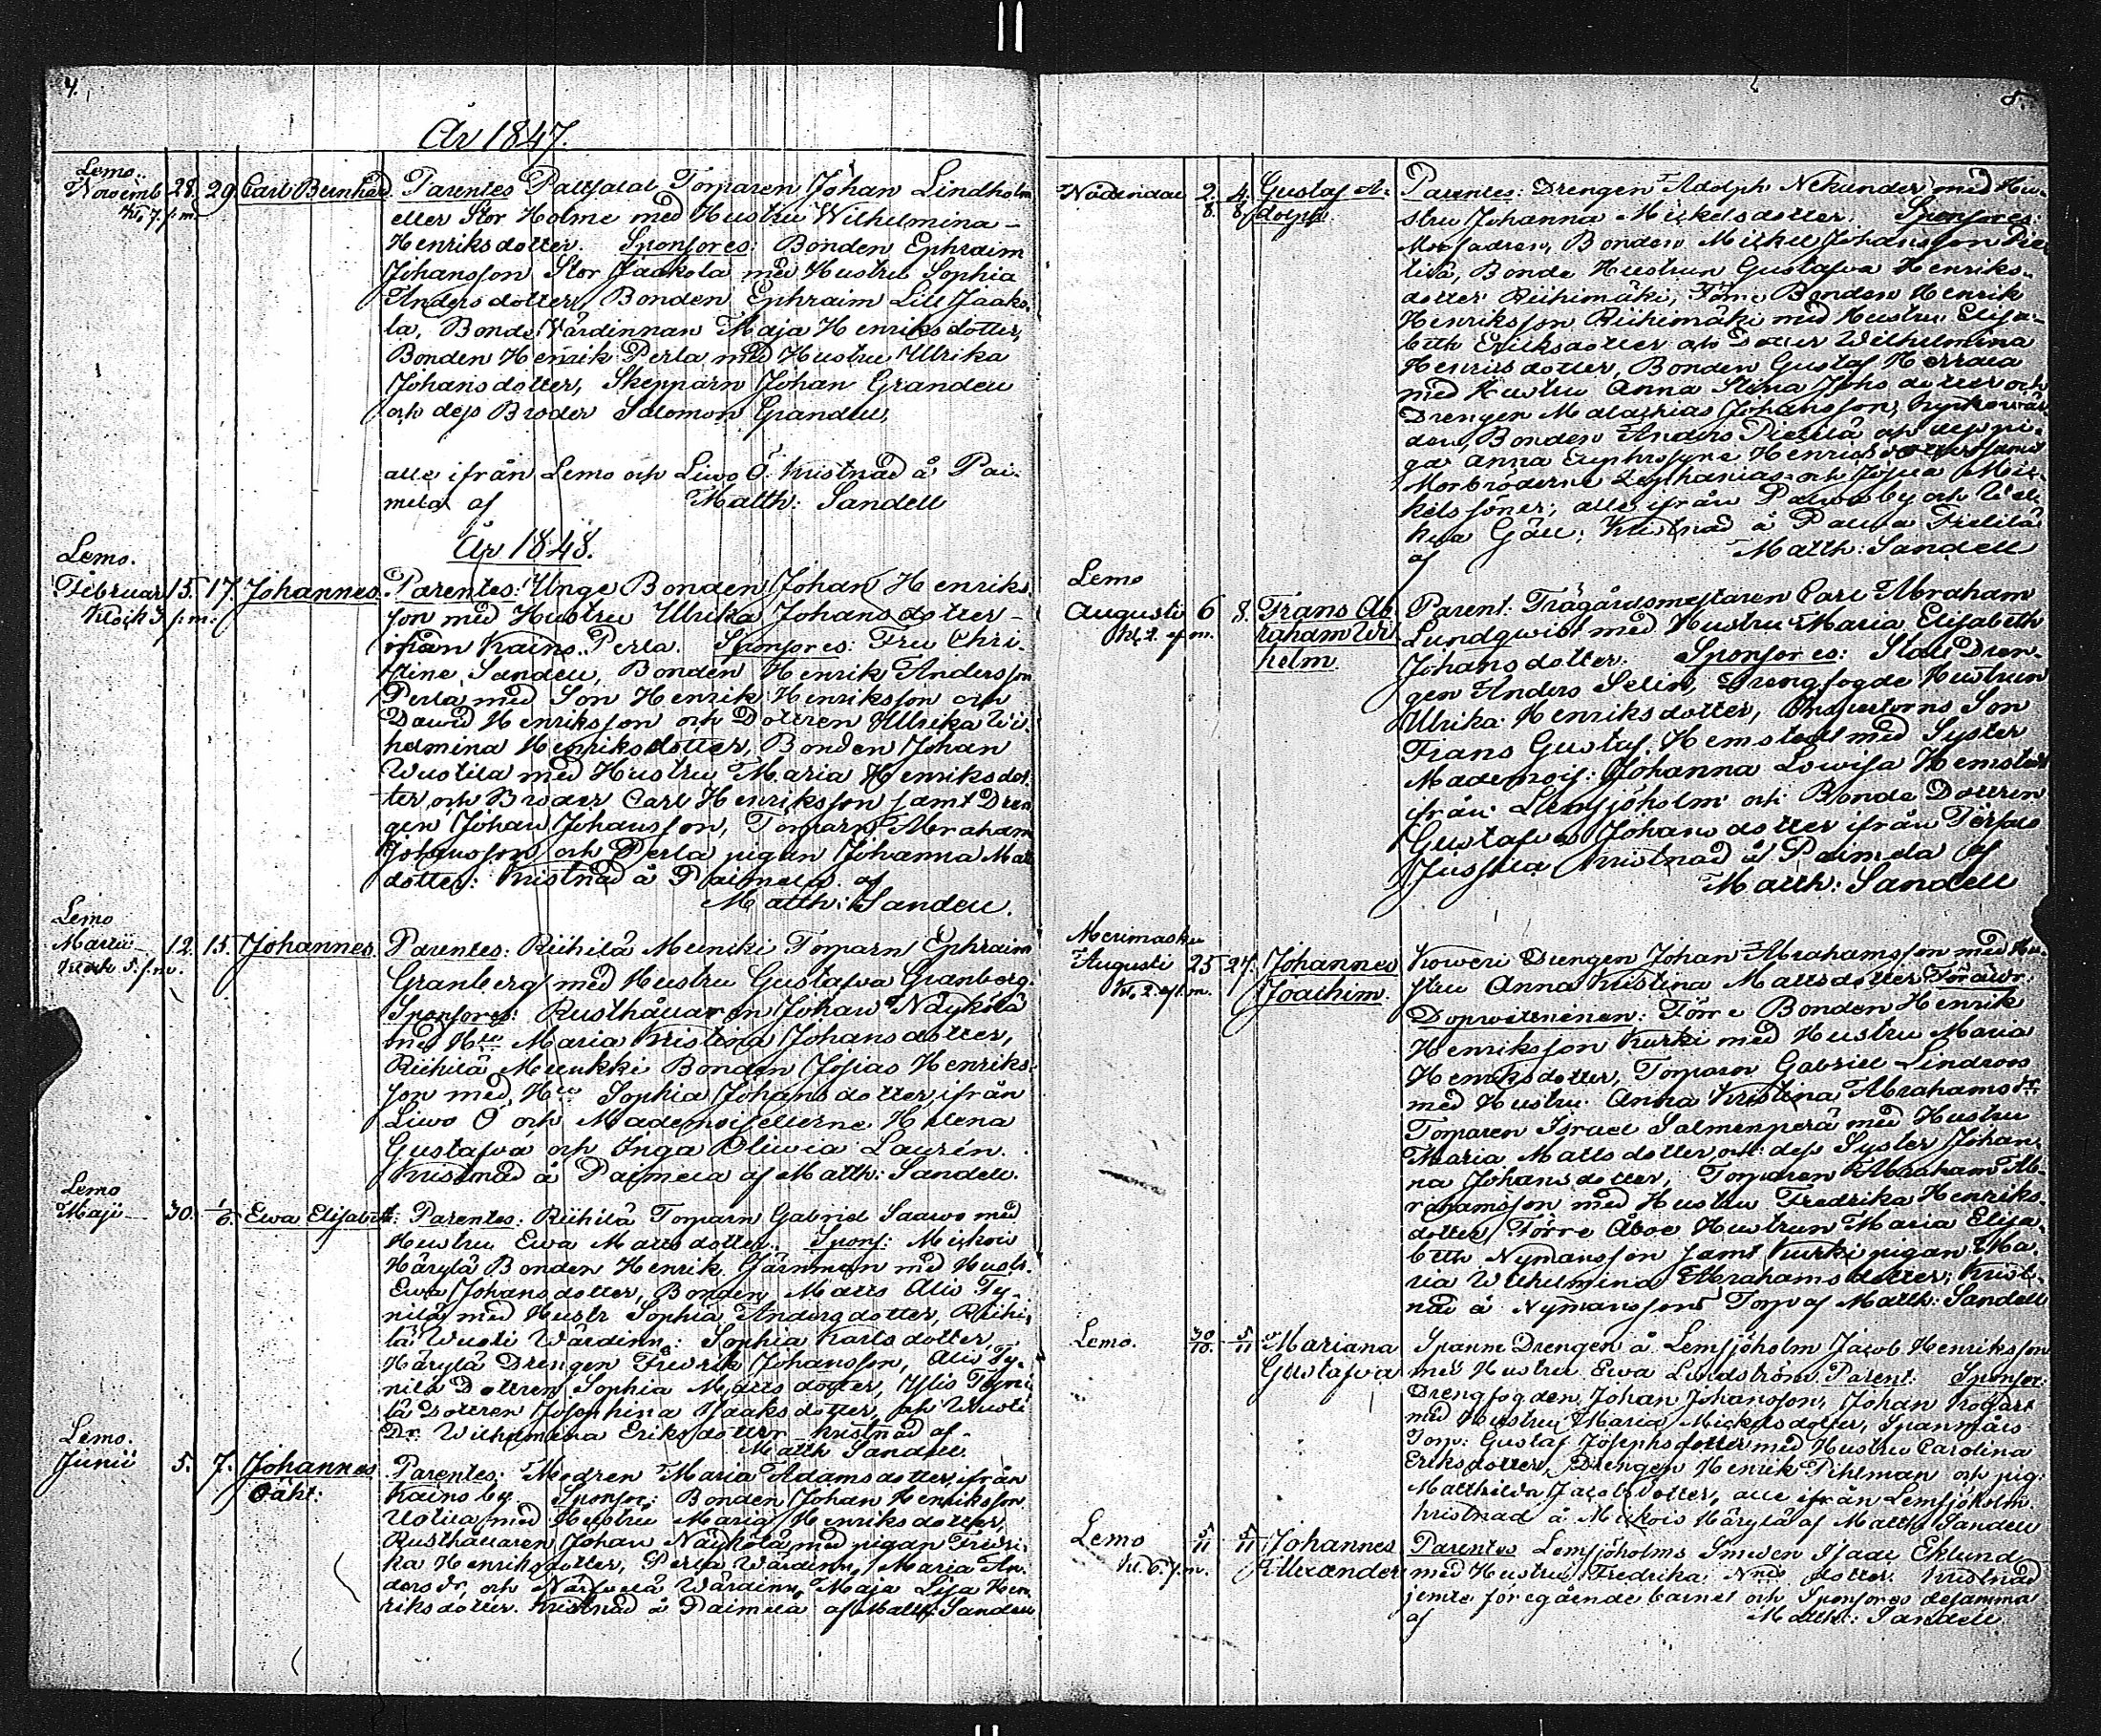 4.
År 1847.
Lemo.
Novemb 28. 29. Carl Bernhard. Parentes Torparen Johan Lindholm
Kl. 7 f.m. eller Stor Holme med Hustru Wilhelmina
Henriksdotter. Sponsores: Bonden Ephraim
Johansson Stor Jaakola med Hustru Sophia
Andersdotter, Bonden Ephraim Lill Jaako-
la, Bonde Wärdinnan Maja Henriksdotter,
Bonden Henrik Perla med Hustru Ulrika
Johansdotter, Skepparn Johan Grandell
och dess Broder Salomon Grandell,
alle ifrån Lemo och Liwo Ö. Kristnad å Pai-
mela af Matth: Sandell
År 1848.
Lemo.
Februar 15. 17. Johannes. Parentes: Unge Bonden Johan Henriks
Klock 3 f:m: son med Hustru Ulrika Johansdotter
ifrån Kains Perla. Sponsores: Fru Chri-
stine Sandell, Bonden Henrik Andersson
Perla med Son Henrik Henriksson och
Dawid Henriksson och Dottren Ulrika Wil-
helmina Henriksdotter, Bonden Johan
med Hustru Maria Henriksdot-
ter och Broder Carl Henriksson samt Dren
gen Johan Johansson, Torparn Abraham
Johansson och Perla pigan Johanna Mats
dotter: Kristnad å Paimela af
Matth: Sandell.
Lemo
Martii 12. 15. Johannes. Parentes: Riihilä Torparn Ephraim
Klock 5. f.m. Granberg med Hustru Gustafva Granberg.
Sponsores: Rusthållaren Johan Näykölä
med Hu Maria Kristina Johansdotter,
Riihilä Bonden Josias Henriks-
son med Hu Sophia Johansdotter, ifrån
Liwo Ö och Mademoisellerne Helena
Gustafva och Inga Oliwia Laurén.
Kristnad å Paimela af Matth: Sandell.
Lemo
Maji 30. 1/6. Ewa Elisabeth: Parentes: Riihilä Torparn Gabriel Saawo med
Hustru Ewa Mattsdotter. Spons: Miskois
Härylä Bonden Henrik Järnman med Hustr.
Ewa Johansdotter, Bonden Matts Alis Ty-
nilä med Hustr Sophia Andersdotter, Riihi-
lä Wusti Wärdinn: Sophia Karlsdotter,
Härylä Drengen Fredrik Johansson, Alis Ty-
nilä Dottren Sophia Mattsdotter,
lä Dottren Josephina Isaaksdotter, och
Dr Wilhelmina Eriksdotter. Kristnad af
Matth Sandell.
Lemo.
Junii 5. 7. Johannes Parentes: Modren Maria Adamsdotter, ifrån
Oäkt: Kainsby. Sponsor: Bonden Johan Henriksson
med Hustru Maria Henriksdotter,
Rusthållaren Johan Näykölä med pigan Fredri-
ka Henriksdotter, Perla Wärdinn, Maria An-
dersdr. och Wärdinn, Maja Lisa Hen-
riksdotter. Kristnad å Paimela af Matth: Sandell
5.
Nådendal 2/8. 4/8. Gustaf A- Parentes: Drengen Adolph Nekunder med Hu-
dolph. stru Johanna Mickelsdotter. Sponsores:
Morfadren, Bonden Mickel Johansson Pie-
tilä, Bonde Hustrun Gustafva Henriks-
dotter Riihimäki, Förre Bonden Henrik
Henriksson Riihimäki med Hustru Elisa-
beth Eriksdotter och Dotter Wilhelmina
Henriksdotter, Bonden Gustaf Herrala
med Hustru Anna Stina Johsdotter och
Drengen Malachias Johansson, Kyrkowär-
den, Bonden Anders Pietilä och dess pi-
ga Anna Euphrosyne Henriksdotter samt
Morbröderne Zephanias och Josua Mic-
kels söner, alle ifrån
Kristnad å Pietilä
af Matth: Sandell
Lemo
Augusti 6 8. Frans Ab- Parent: Trägårdsmestaren Carl Abraham
Kl. 2. ef m. raham Wil- Lundqwist med Hustru Maria Elisabeth
helm. Johansdotter. Sponsores: Stall Dren-
gen Anders Selin, Drengfogde Hustrun
Ulrika Henriksdotter, Son
Frans Gustaf Hemstedt med Syster
Mademois: Johanna Lowisa Hemstedt
ifrån Lemsjöholm och Bonde Dottren
Gustafva Johansdotter ifrån
Jussila Kristnad å Paimela af
Matth: Sandell
Merimasku
Augusti 25 27. Johannes Drengen Johan Abrahamsson med Hu-
Kl. 2. ef.m. Joachim. stru Anna Kristina Mattsdotter Föräldr:
Dopwittninen: Förre Bonden Henrik
Henriksson Kurki med Hustru Maria
Henriksdotter, Torparn Gabriel Lindroos
med Hustru Anna Kristina Abrahamsdr.
Torparen Israel Salmenperä med Hustru
Maria Mattsdotter och dess Syster Johan-
na Johansdotter, Torparen Abraham Ab-
rahamsson med Hustru Fredrika Henriks-
dotter, Förre Åboe Hustrun Maria Elisa-
beth Nymansson samt Kurki pigan Ma-
ria Wilhelmina Abrahamsdotter; Krist-
nad å Nymanssons Torp af Matth: Sandell
Lemo. 30/10. 5/11 Mariana Spanne Drengen å Lemsjöholm Jacob Henriksson
Gustafva med Hustru Ewa Lindström Parent: Sponsor:
Drengfogden Johan Johansson, Johan
med Hustru Maria Mickelsdotter,
Torp: Gustaf med Hustru Carolina
Eriksdotter, Drengen Henrik Pihlman och pig:
Mathilda Jacobsdotter, alle ifrån Lemsjöholm.
Kristnad å Miskois Härylä af Matth: Sandell
Lemo 5/11 5/11 Johannes Parentes Lemsjöholms Smeden Isaac Eklund
Kl. 6. f.m. Allexander med Hustru Fredrika dotter. Kristnad
jemte föregående barnet och Sponsores desamma
af Matth: Sandell.